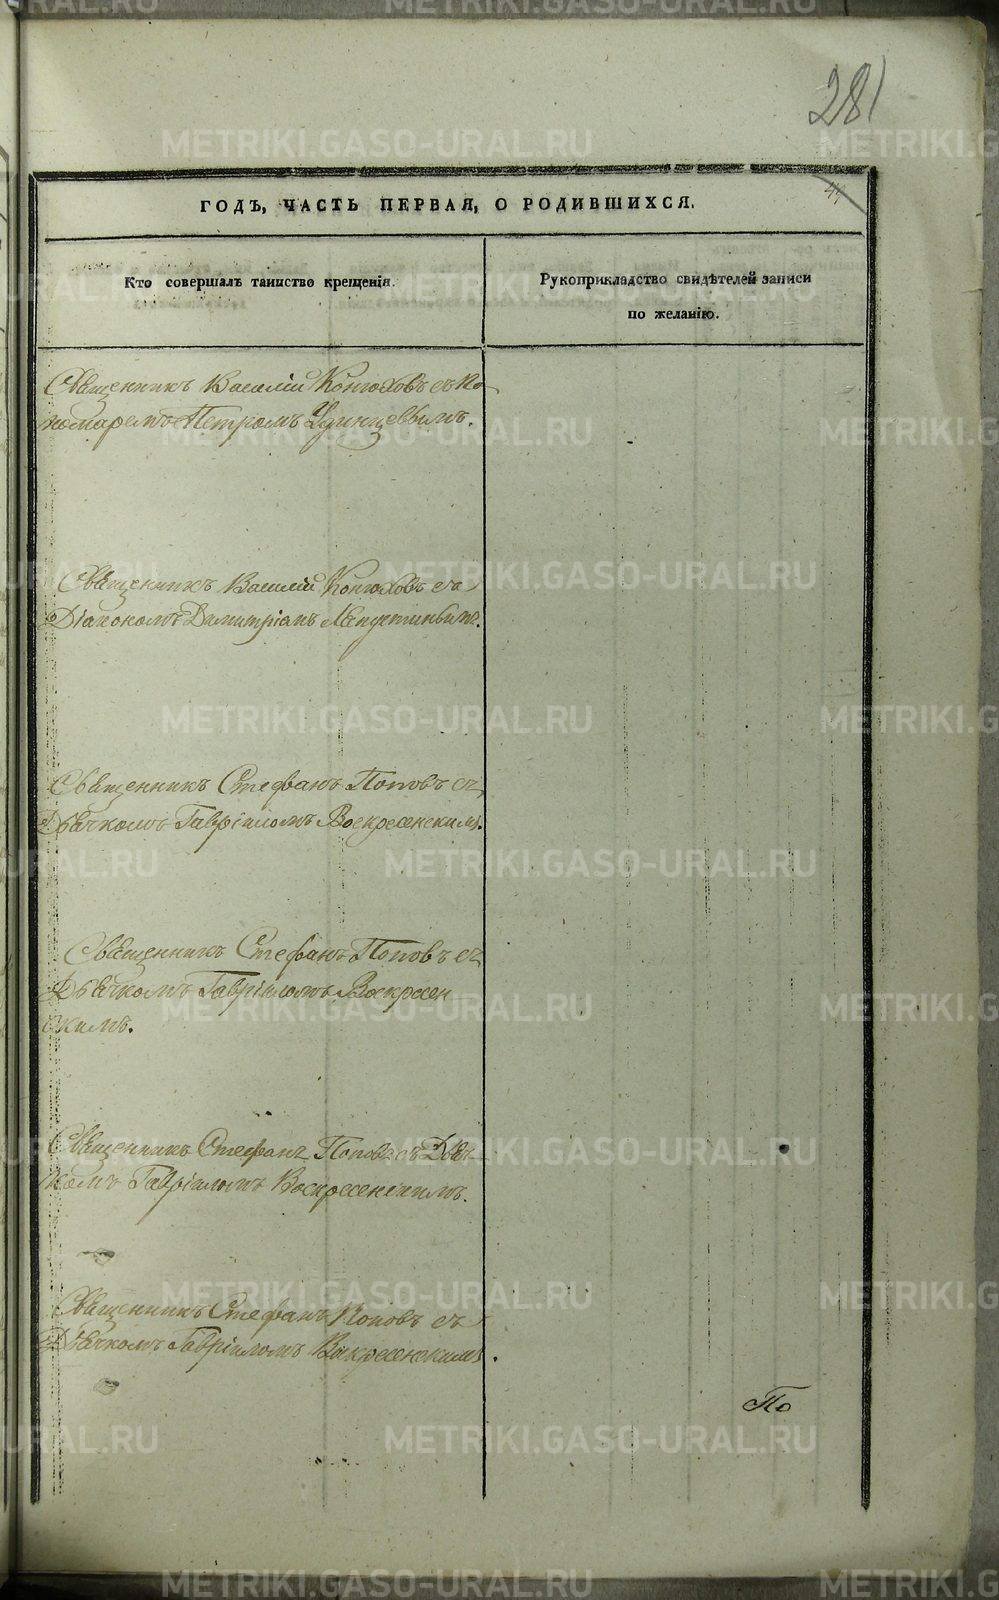 281
44
ГОДЪ, ЧАСТЬ ПЕРВАЯ, О РОДИВШИХСЯ.
Кто совершалъ таинство крещенія.
Рукоприкладство свидѣтелей записи
по желанію.
Священникъ Василій Конюховъ съ По
номаремъ Петромъ Удинцевымъ.
Священникъ Василій Конюховъ съ
Діакономъ Димитріемъ
Священникъ Стефанъ Поповъ съ
Дьячкомъ Гавріиломъ Воскресенскимъ.
Священникъ Стефанъ Поповъ съ
Дьячкомъ Гавріиломъ Воскресен
скимъ.
Священникъ Стефанъ Поповъ съ Дьяч
комъ Гавріиломъ Воскресенскимъ.
Священникъ Стефанъ Поповъ съ
Дьячкомъ Гавріиломъ Вокресенскимъ.
По
METRIKI.GASO-URAL.RU